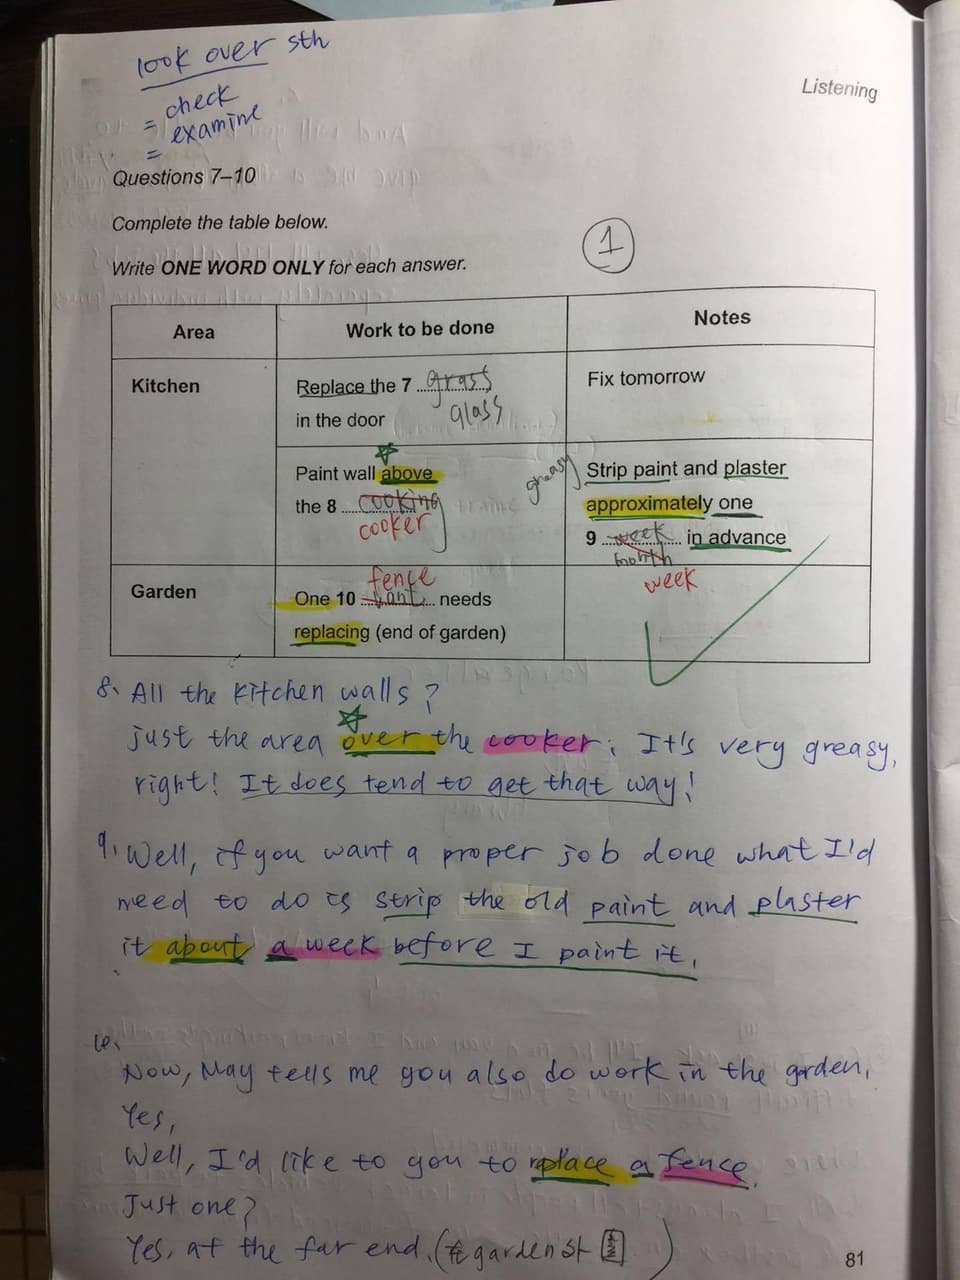 look over sth
= check
= examine
=
Listening
Questions 7–10
Complete the table below.
1
Write ONE WORD ONLY for each answer.
Area
Work to be done
Notes
Kitchen
Replace the 7 grass
glass
in the door
Fix tomorrow
Paint wall above
the 8 cooking
cooker
greasy
Strip paint and plaster
approximately one
9 week in advance
month
week
Garden
fence
One 10 needs
replacing (end of garden)
8、 All the kitchen walls?
just the area over the cooker; It's very greasy,
right! It does tend to get that way!
9, Well, if you want a proper job done what I'd
need to do is strip the old paint and plaster
it about a week before I paint it,
Now, May tells me you also do work in the garden,
Yes,
Well, I'd like to you to replace a fence,
Just one?
Yes, at the far end, (在 garden
81